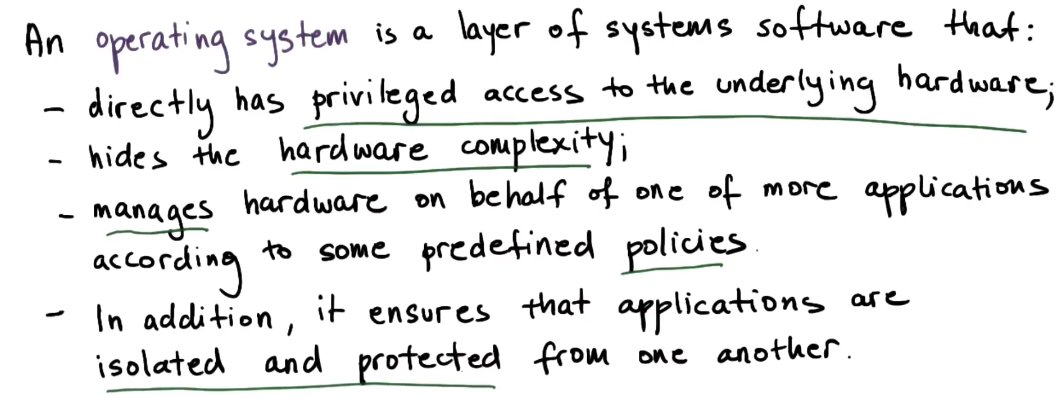 An operating system is a layer of systems software that:
- directly has privileged access to the underlying hardware;
- hides the hardware complexity;
- manages hardware on behalf of one of more applications
according to some predefined policies.
- In addition, it ensures that applications are
isolated and protected from one another.